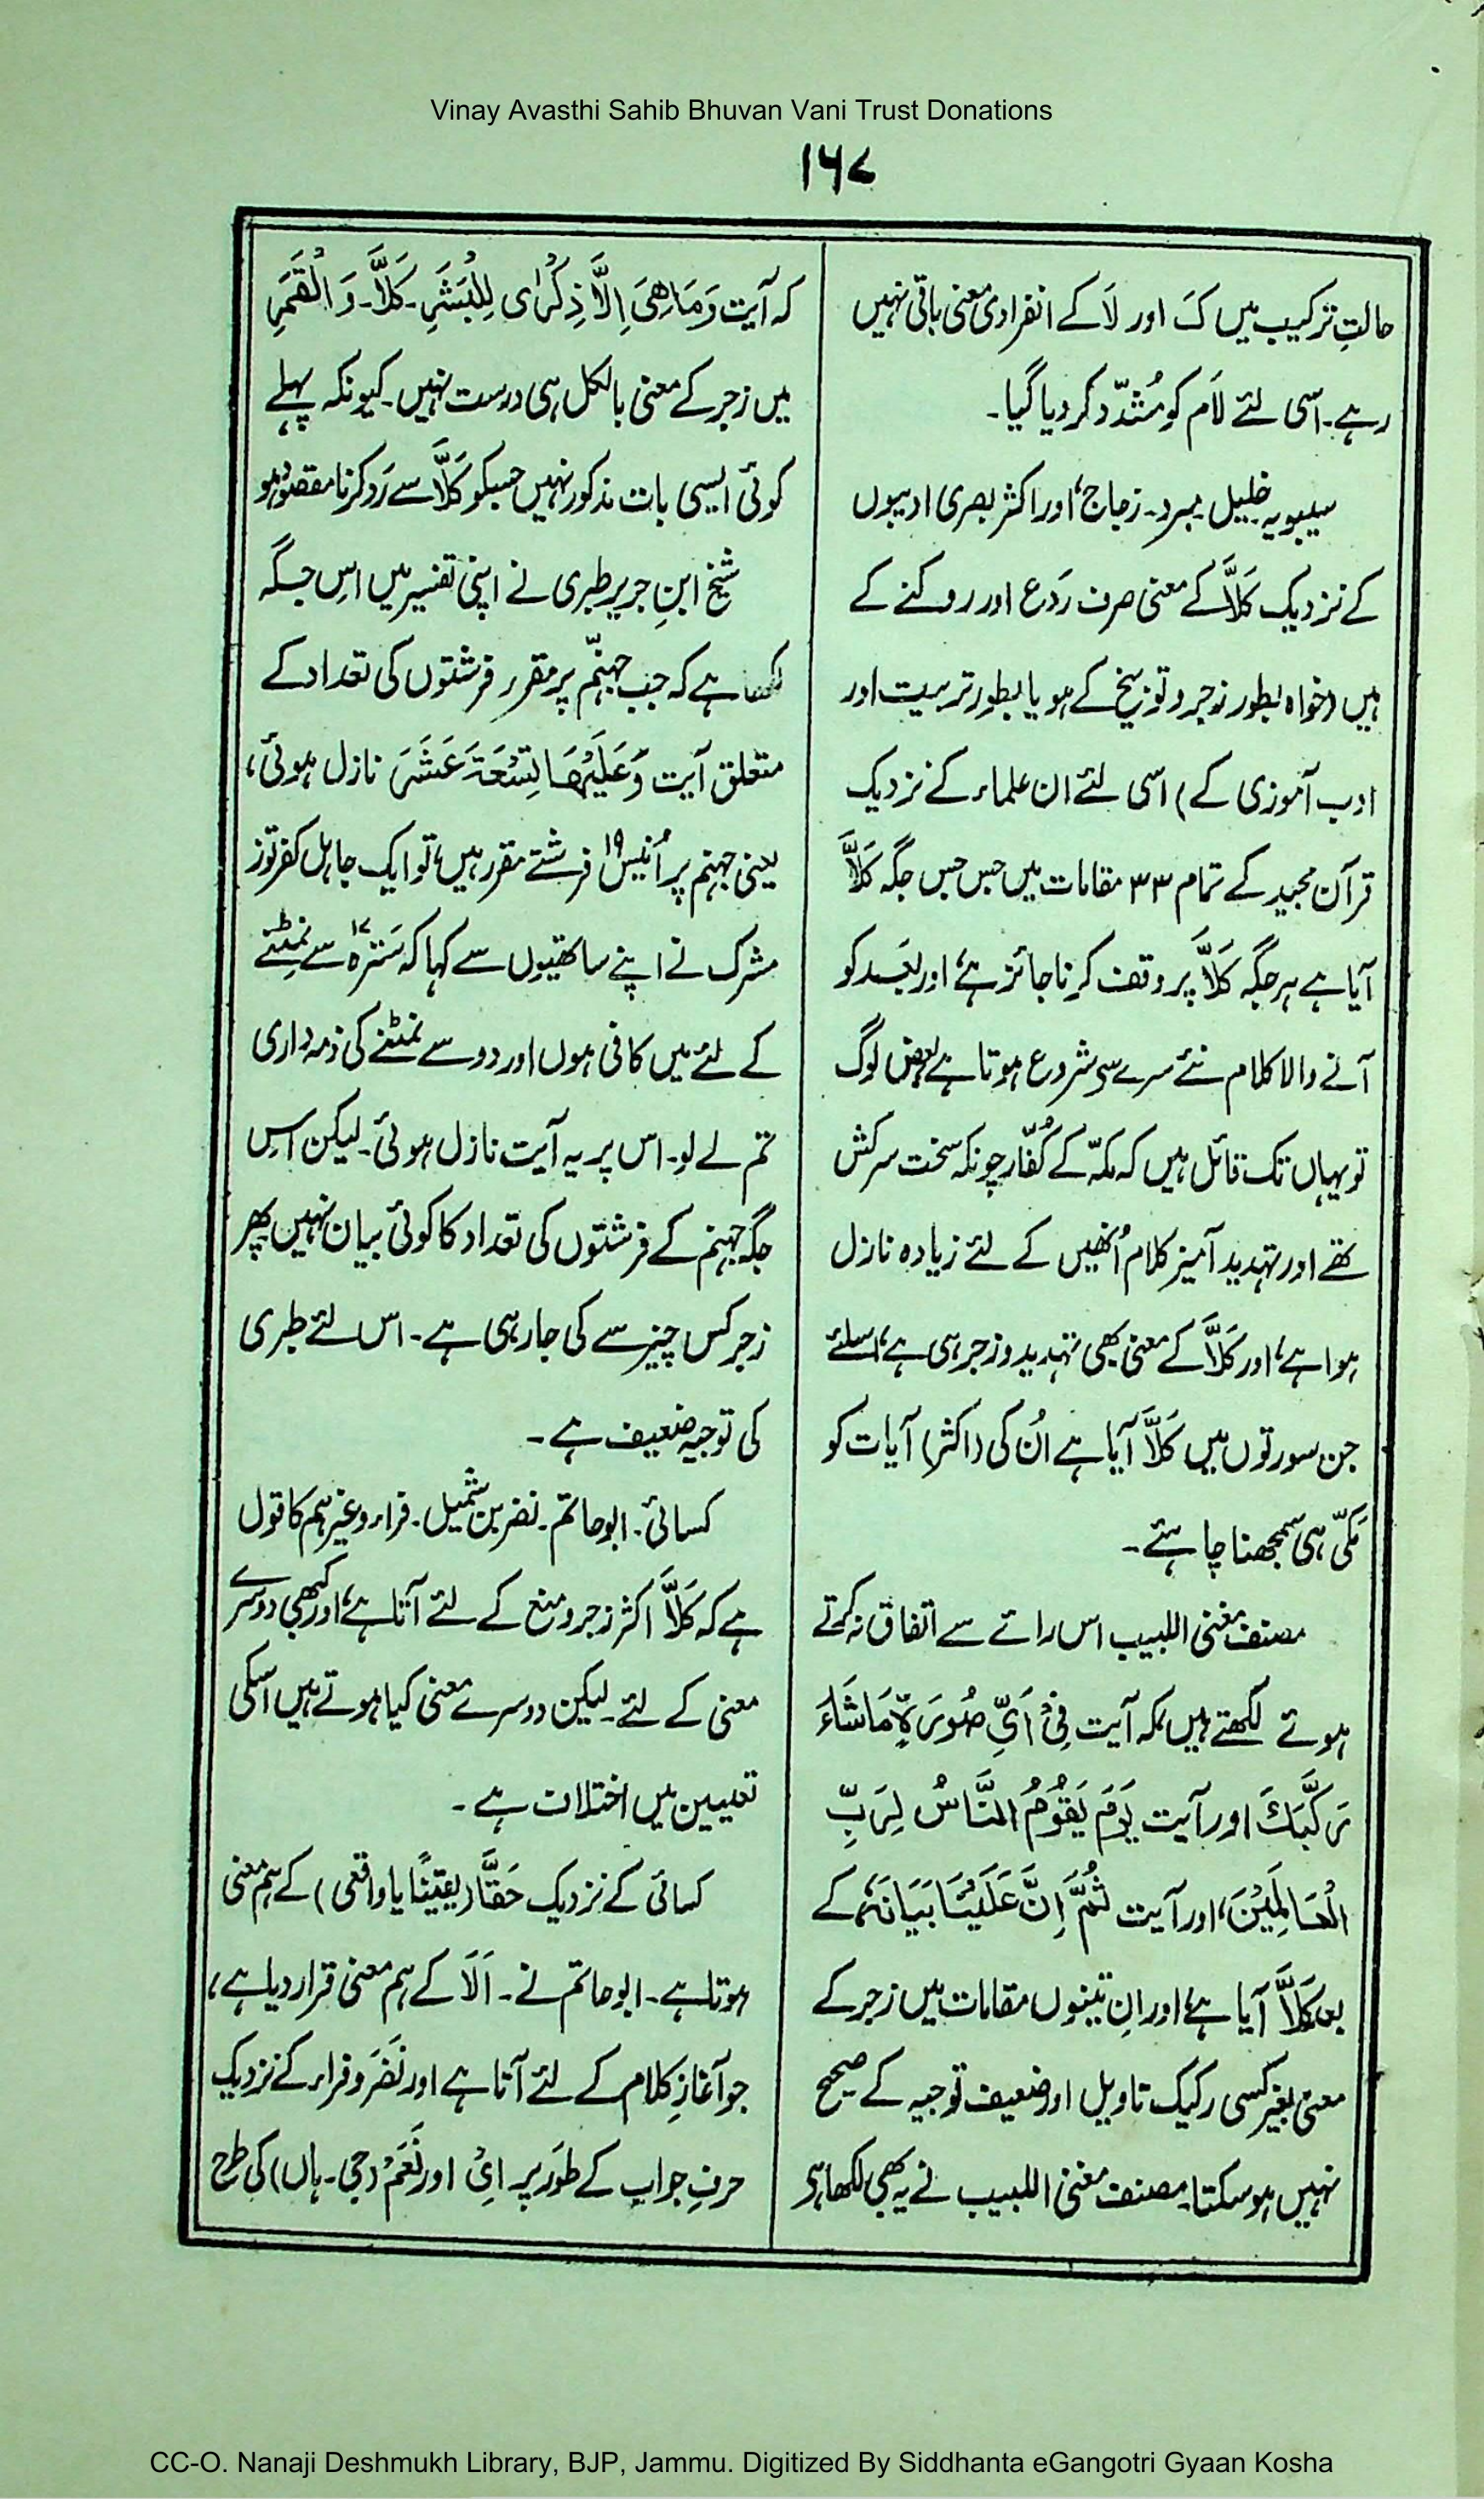 Vinay Avasthi Sahib Bhuvan Vani Trust Donations
۱۶۷
حالتِ ترکیب میں کَ اور لَا کے انفرادی معنی باقی نہیں
رہے۔ اسی لئے لام کو مُشدّد کر دیا گیا۔
سیبویہ خلیل۔ مبرد۔ زجاج، اور اکثر بصری ادیبوں
کے نزدیک کَلَّا کے معنی صرف رَدَع اور روکنے کے
ہیں (خواہ بطور زجر و توبیخ کے ہو یا بطور تربیت اور
ادب آموزی کے) اسی لئے ان علماء کے نزدیک
قرآن مجید کے تمام ۳۳ مقامات میں جس جس جگہ کَلَّا
آیا ہے ہر جگہ کَلَّا پر وقف کرنا جائز ہے، اور بَعد کو
آنے والا کلام نئے سرے سے شروع ہوتا ہے بعض لوگ
تو یہاں تک قائل ہیں کہ مکّہ کے کُفّار چونکہ سخت سرکش
تھے اور تہدید آمیز کلام اُنھیں کے لئے زیادہ نازل
ہوا ہے، اور کَلَّا کے معنی بھی تہدید و زجر ہی ہے، اسلئے
جن سورتوں میں کَلَّا آیا ہے اُن کی (اکثر) آیات کو
مَکّی ہی سمجھنا چاہئے۔
مصنف مغنی اللبیب اس رائے سے اتفاق نہ کرتے
ہوئے لکھتے ہیں، کہ آیت فِیْ اَیِّ صُوْرَۃٍ مَّا شَاءَ
رَکَّبَکَ اور آیت یَوْمَ یَقُوْمُ النَّاسُ لِرَبِّ
الْعَالَمِیْنَ، اور آیت ثُمَّ اِنَّ عَلَیْنَا بَیَانَہٗ کے
بعد کَلَّا آیا ہے، اور اِن تینوں مقامات میں زجر کے
معنی بغیر کسی رکیک تاویل اور ضعیف توجیہ کے صحیح
نہیں ہو سکتا۔ مصنف مغنی اللبیب نے یہ بھی لکھا ہر
کہ آیت وَمَا ھِیَ اِلَّا ذِکْرٰی لِلْبَشَرِ۔ کَلَّا۔ وَ الْقَمَرِ
میں زجر کے معنی بالکل ہی درست نہیں۔ کیونکہ پہلے
کوئی ایسی بات مذکور نہیں جسکو کَلَّا سے رَد کرنا مقصود ہو
شیخ ابنِ جریر طبری نے اپنی تفسیر میں اسِ جگہ
لکھا ہے کہ جب جہنّم پر مقرر فرشتوں کی تعداد کے
متعلق آیت وَعَلَیْھَا تِسْعَۃَ عَشَرَ نازل ہوئی،
یعنی جہنم پر اُنیس ۱۹ فرشتے مقرر ہیں، تو ایک جاہل کفر توز
مشرک نے اپنے ساتھیوں سے کہا کہ سَترہ ۱۷ سے نمِٹنے
کے لئے میں کافی ہوں اور دو سے نمٹنے کی ذمہ داری
تم لے لو۔ اس پر یہ آیت نازل ہوئی۔ لیکن اسِ
جگہ جہنم کے فرشتوں کی تعداد کا کوئی بیان نہیں پھر
زجر کس چیز سے کی جا رہی ہے۔ اس لئے طبری
کی توجیہ ضعیف ہے۔
کسائی۔ ابو حاتم۔ نضر بن شُمیل۔ فراء وغیرہم کا قول
ہے کہ کَلَّا اکثر زجر و منع کے لئے آتا ہے، اور کبھی دوسرے
معنی کے لئے۔ لیکن دوسرے معنی کیا ہوتے ہیں اسکی
تعیین میں اختلاف ہے۔
کسائی کے نزدیک حَقًّا (یقینًا یا واقعی) کے ہم معنی
ہوتا ہے۔ ابو حاتم نے۔ اَلَا کے ہم معنی قرار دیا ہے،
جو آغازِ کلام کے لئے آتا ہے اور نَضَر و فراء کے نزدیک
حرفِ جواب کے طَور پر اِیْ اور نَعَمْ (جی۔ ہاں) کی طرح
CC-O. Nanaji Deshmukh Library, BJP, Jammu. Digitized By Siddhanta eGangotri Gyaan Kosha